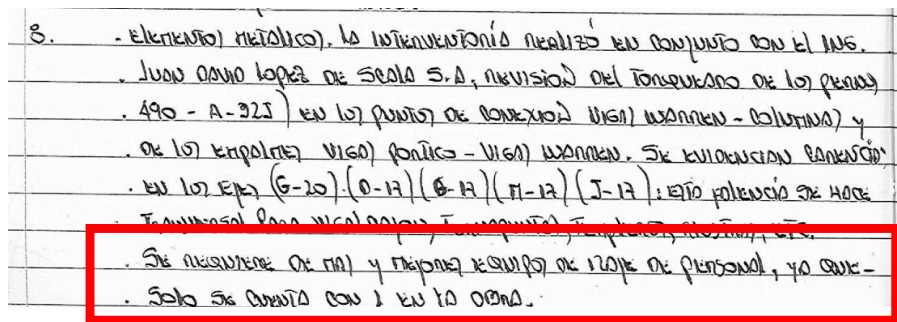 8. . Elementos metalicos). La interventoría realizó en conjunto con el Ing.
. Juan David Lopez de Scala S.A, revision del torqueado de los pernos
. 490 - A-325) en los puntos de conexion vigas warren - columnas y
. de los empalmes vigas portico - vigas warren. Se evidencian
. en los ejes (G-20).(O-17)(G-17)(M-17)(J-17): esto se hace
. Se requiere de mas y mejores equipos de izaje de personal, ya que-
. solo se cuenta con 1 en la obra.